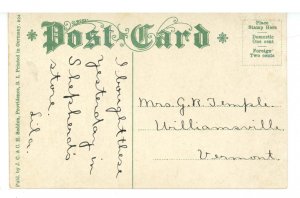 Post Card
Place
Stamp Here
Domestic
One cent
Foreign
Two cents
I bought these
yesterday in
Shepherd's
store.
Lila.
Mrs. G. B. Temple.
Williamsville
Vermont.
Publ. by J. C. & C. H. Seddon, Providence, R. I. Printed in Germany.